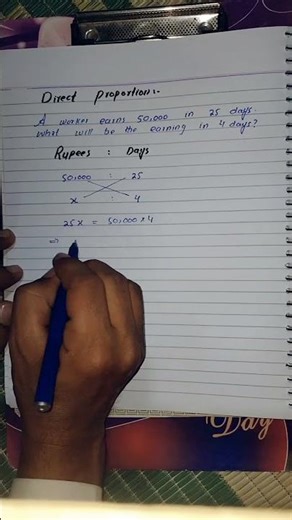 Direct Proportion:-
A worker earns 50,000 in 25 days.
What will be the earning in 4 days?
Rupees : Days
50,000 : 25
x : 4
25x = 50,000 × 4
⇒
Day